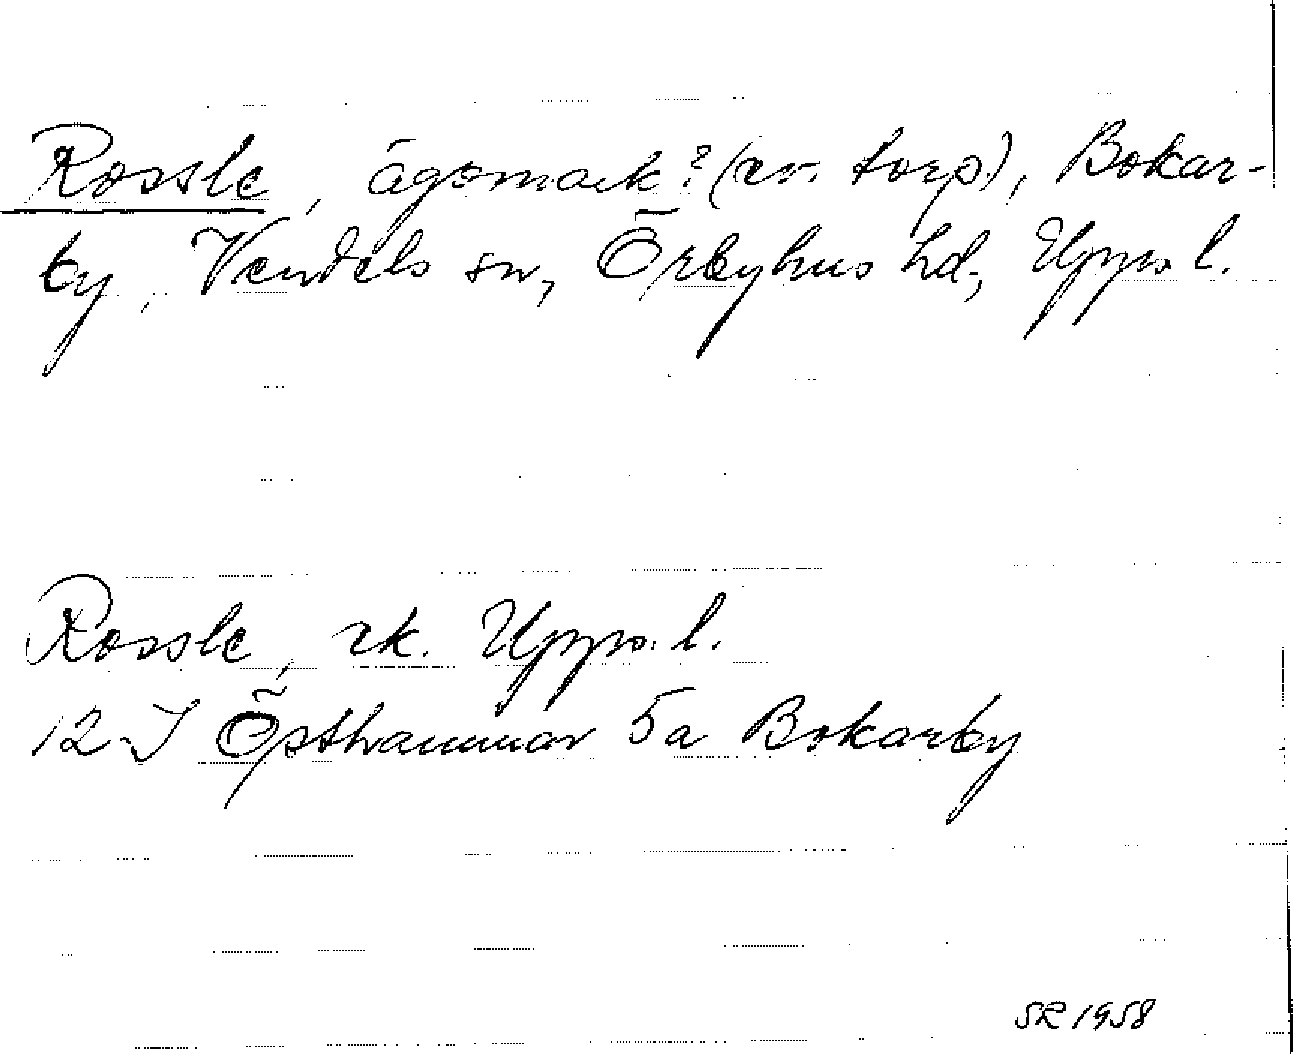 Rossle, ägomark? (ev. torp), Bokar-
by, Vendels sn, Örbyhus hd, Upps. l.
Rossle, rk. Upps. l.
12 I Östhammar 5a Bokarby
SR 1958